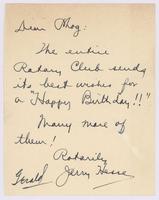 Dear Thog:
The entire
Rotary Club sends
its best wishes for
a "Happy Birthday!!"
Many more of
them!
Rotarily
Gerald Jerry Hesse